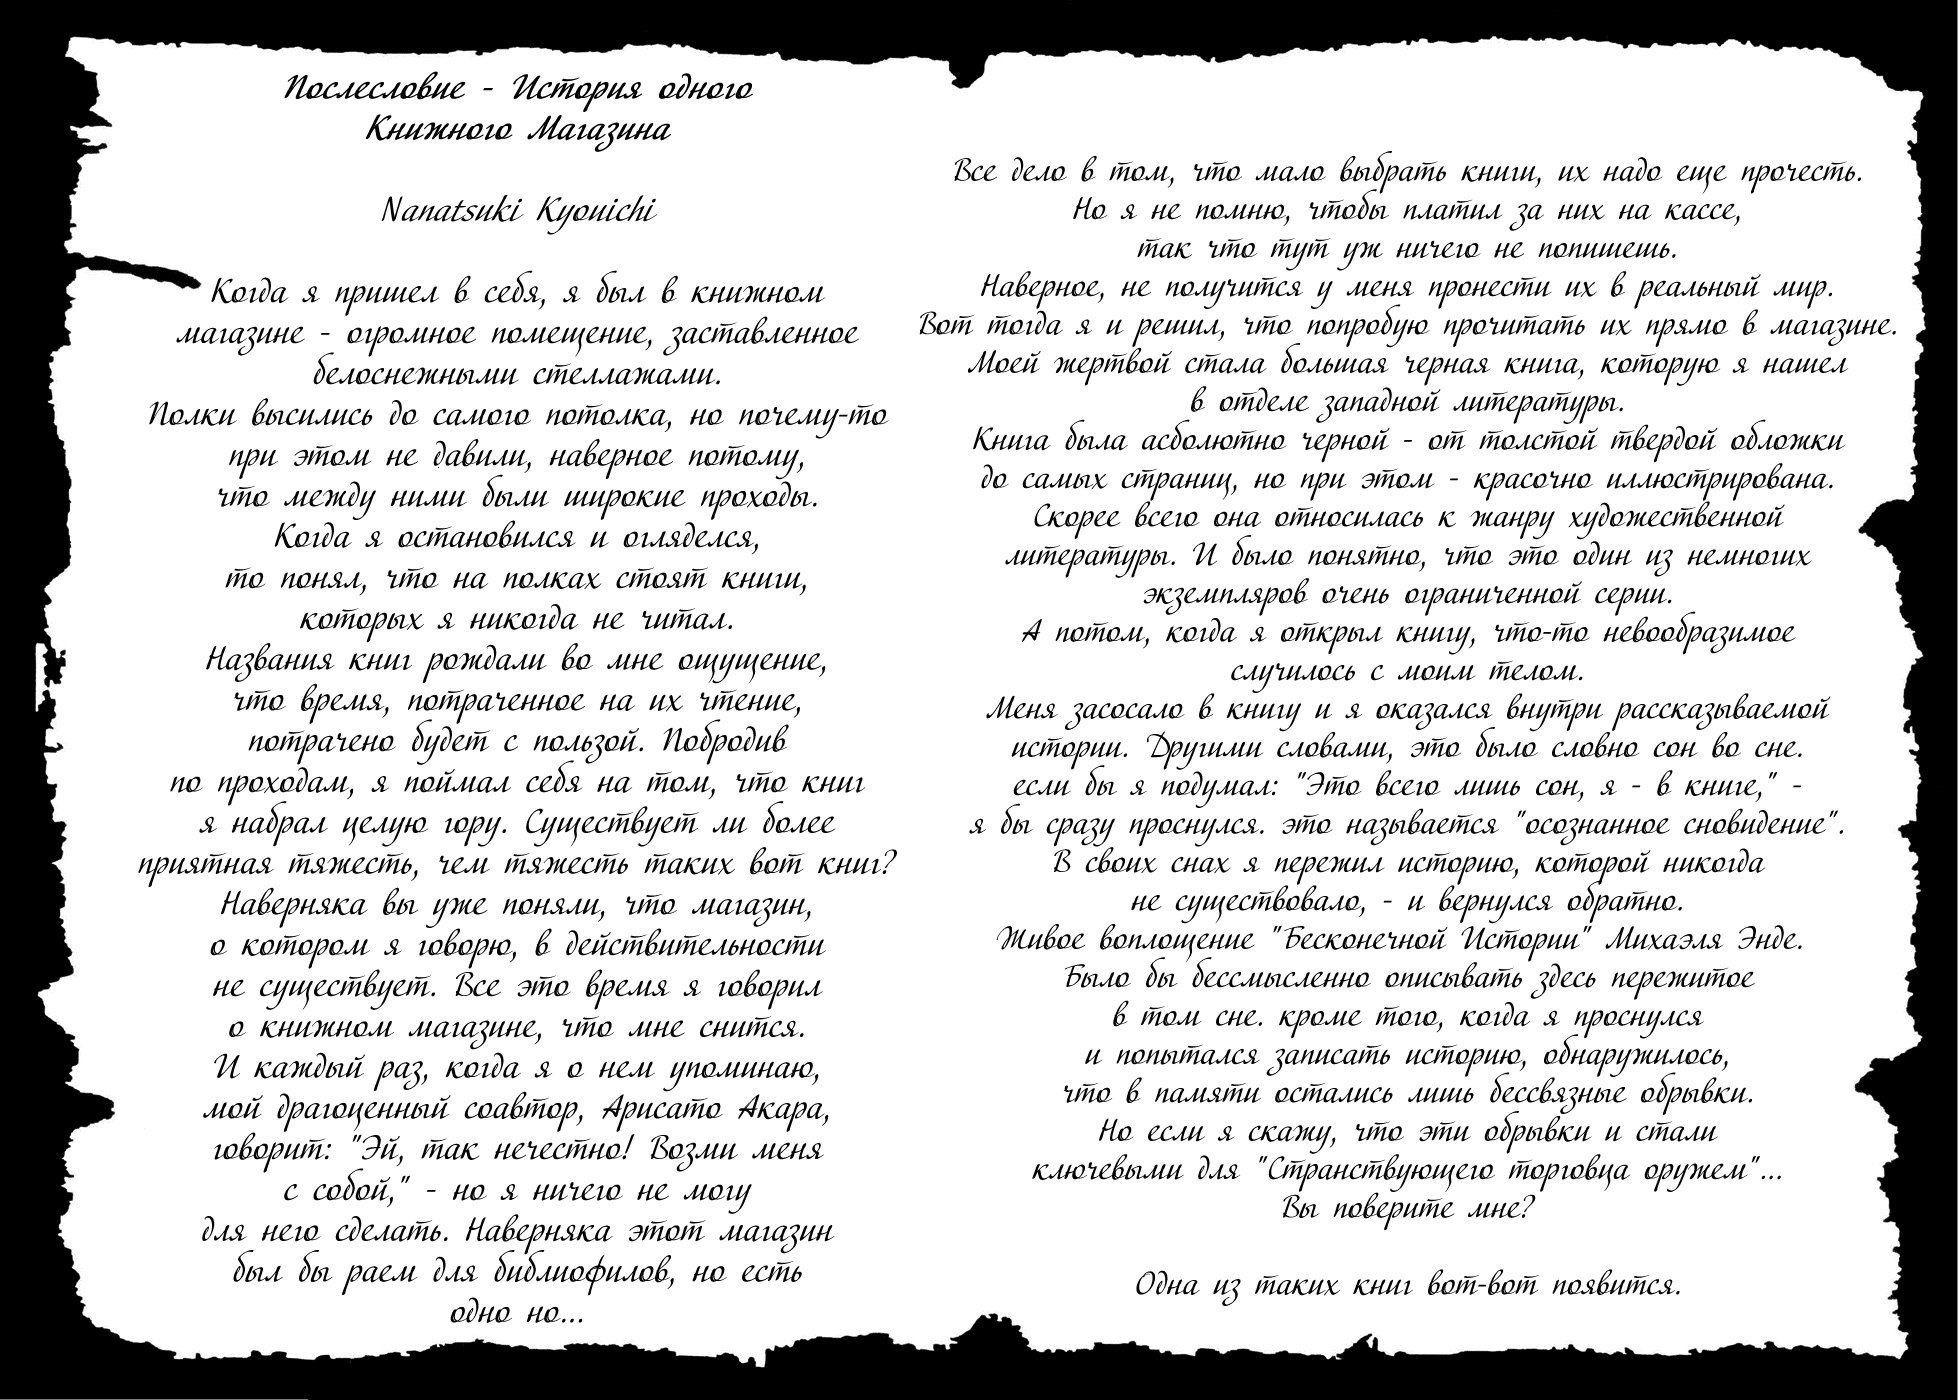 Послесловие - История одного
Книжного Магазина
Nanatsuki Kyouichi
Когда я пришел в себя, я был в книжном
магазине - огромное помещение, заставленное
белоснежными стеллажами.
Полки высились до самого потолка, но почему-то
при этом не давили, наверное потому,
что между ними были широкие проходы.
Когда я остановился и огляделся,
то понял, что на полках стоят книги,
которых я никогда не читал.
Названия книг рождали во мне ощущение,
что время, потраченное на их чтение,
потрачено будет с пользой. Побродив
по проходам, я поймал себя на том, что книг
я набрал целую гору. Существует ли более
приятная тяжесть, чем тяжесть таких вот книг?
Наверняка вы уже поняли, что магазин,
о котором я говорю, в действительности
не существует. Все это время я говорил
о книжном магазине, что мне снится.
И каждый раз, когда я о нем упоминаю,
мой драгоценный соавтор, Арисато Акара,
говорит: "Эй, так нечестно! Возми меня
с собой," - но я ничего не могу
для него сделать. Наверняка этот магазин
был бы раем для библиофилов, но есть
одно но...
Все дело в том, что мало выбрать книги, их надо еще прочесть.
Но я не помню, чтобы платил за них на кассе,
так что тут уж ничего не попишешь.
Наверное, не получится у меня пронести их в реальный мир.
Вот тогда я и решил, что попробую прочитать их прямо в магазине.
Моей жертвой стала большая черная книга, которую я нашел
в отделе западной литературы.
Книга была асболютно черной - от толстой твердой обложки
до самых страниц, но при этом - красочно иллюстрирована.
Скорее всего она относилась к жанру художественной
литературы. И было понятно, что это один из немногих
экземпляров очень ограниченной серии.
А потом, когда я открыл книгу, что-то невообразимое
случилось с моим телом.
Меня засосало в книгу и я оказался внутри рассказываемой
истории. Другими словами, это было словно сон во сне.
если бы я подумал: "Это всего лишь сон, я - в книге," -
я бы сразу проснулся. это называется "осознанное сновидение".
В своих снах я пережил историю, которой никогда
не существовало, - и вернулся обратно.
Живое воплощение "Бесконечной Истории" Михаэля Энде.
Было бы бессмысленно описывать здесь пережитое
в том сне. кроме того, когда я проснулся
и попытался записать историю, обнаружилось,
что в памяти остались лишь бессвязные обрывки.
Но если я скажу, что эти обрывки и стали
ключевыми для "Странствующего торговца оружем"...
Вы поверите мне?
Одна из таких книг вот-вот появится.